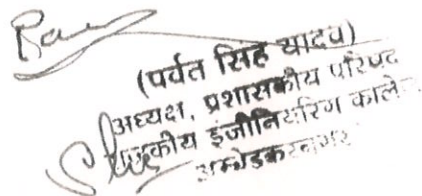 (पर्वत सिंह यादव)
अध्यक्ष, प्रशासकीय परिषद
राजकीय इंजीनियरिंग कालेज
अम्बेडकरनगर